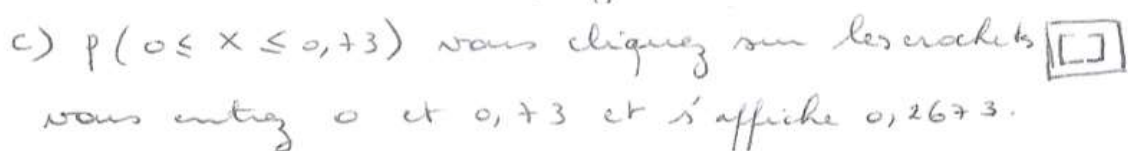 c) p(0 ≤ X ≤ 0,73) vous cliquez sur les crochets []
vous entrez 0 et 0,73 et s'affiche 0,2673.